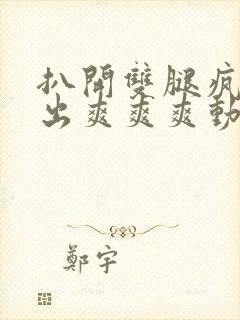 扒開雙腿瘋
出爽爽爽動
鄭宇